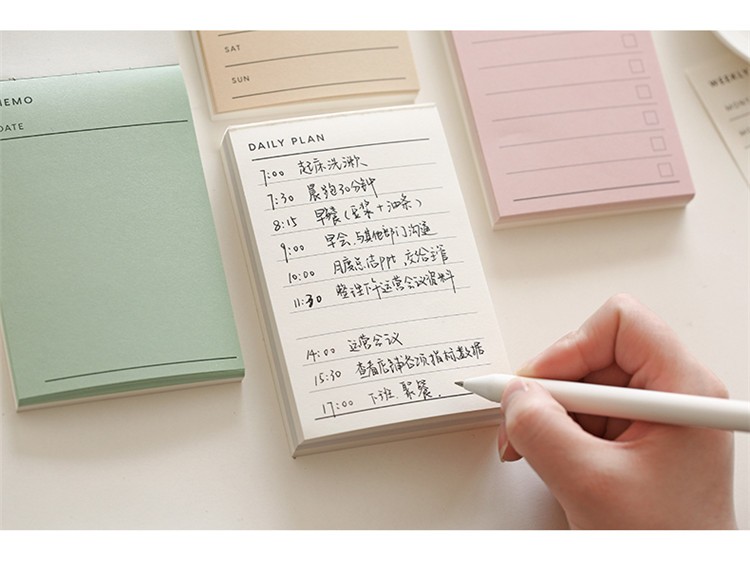 MEMO
DATE
SAT
SUN
DAILY PLAN
7:00 起床洗漱
7:30 晨跑30分钟
8:15 早餐(豆浆+油条)
9:00 早会与其他部门沟通
10:00 月度总结ppt 交给主管
11:30 整理下午运营会议资料
14:00 运营会议
15:30 查看店铺各项指标数据
17:00 下班.聚餐.
WEEKLY
MON